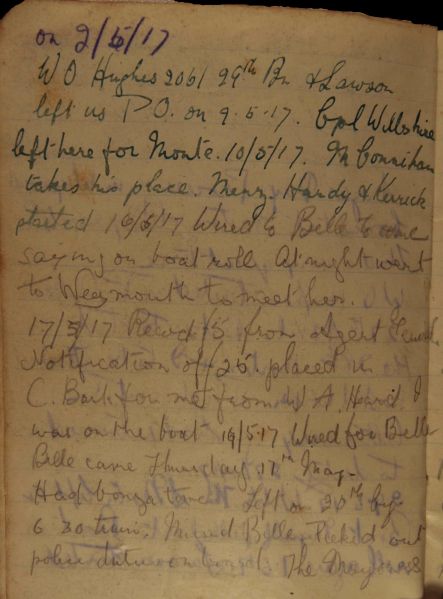 on 2/5/17
W O Hughes 2061 29th Bn & Lawson
left us P.O. on 9.5.17. Cpl Willshire
left here for Monte. 10/5/17. McConnihan
takes his place. Menz. Hardy & Kerrick
started 16/5/17 Wired to Belle to come
saying on boat roll. At night went
to Weymouth to meet her.
17/5/17 Recvd £5 from Agent
Notification of £25. placed in
C. Bank for me from A.
was on the boat 19/5/17 Wired for Belle
Belle came Thursday 17th May.
Had bonza time. Left on 20th by
6 30 train. Missed Belle. out
police duties on The